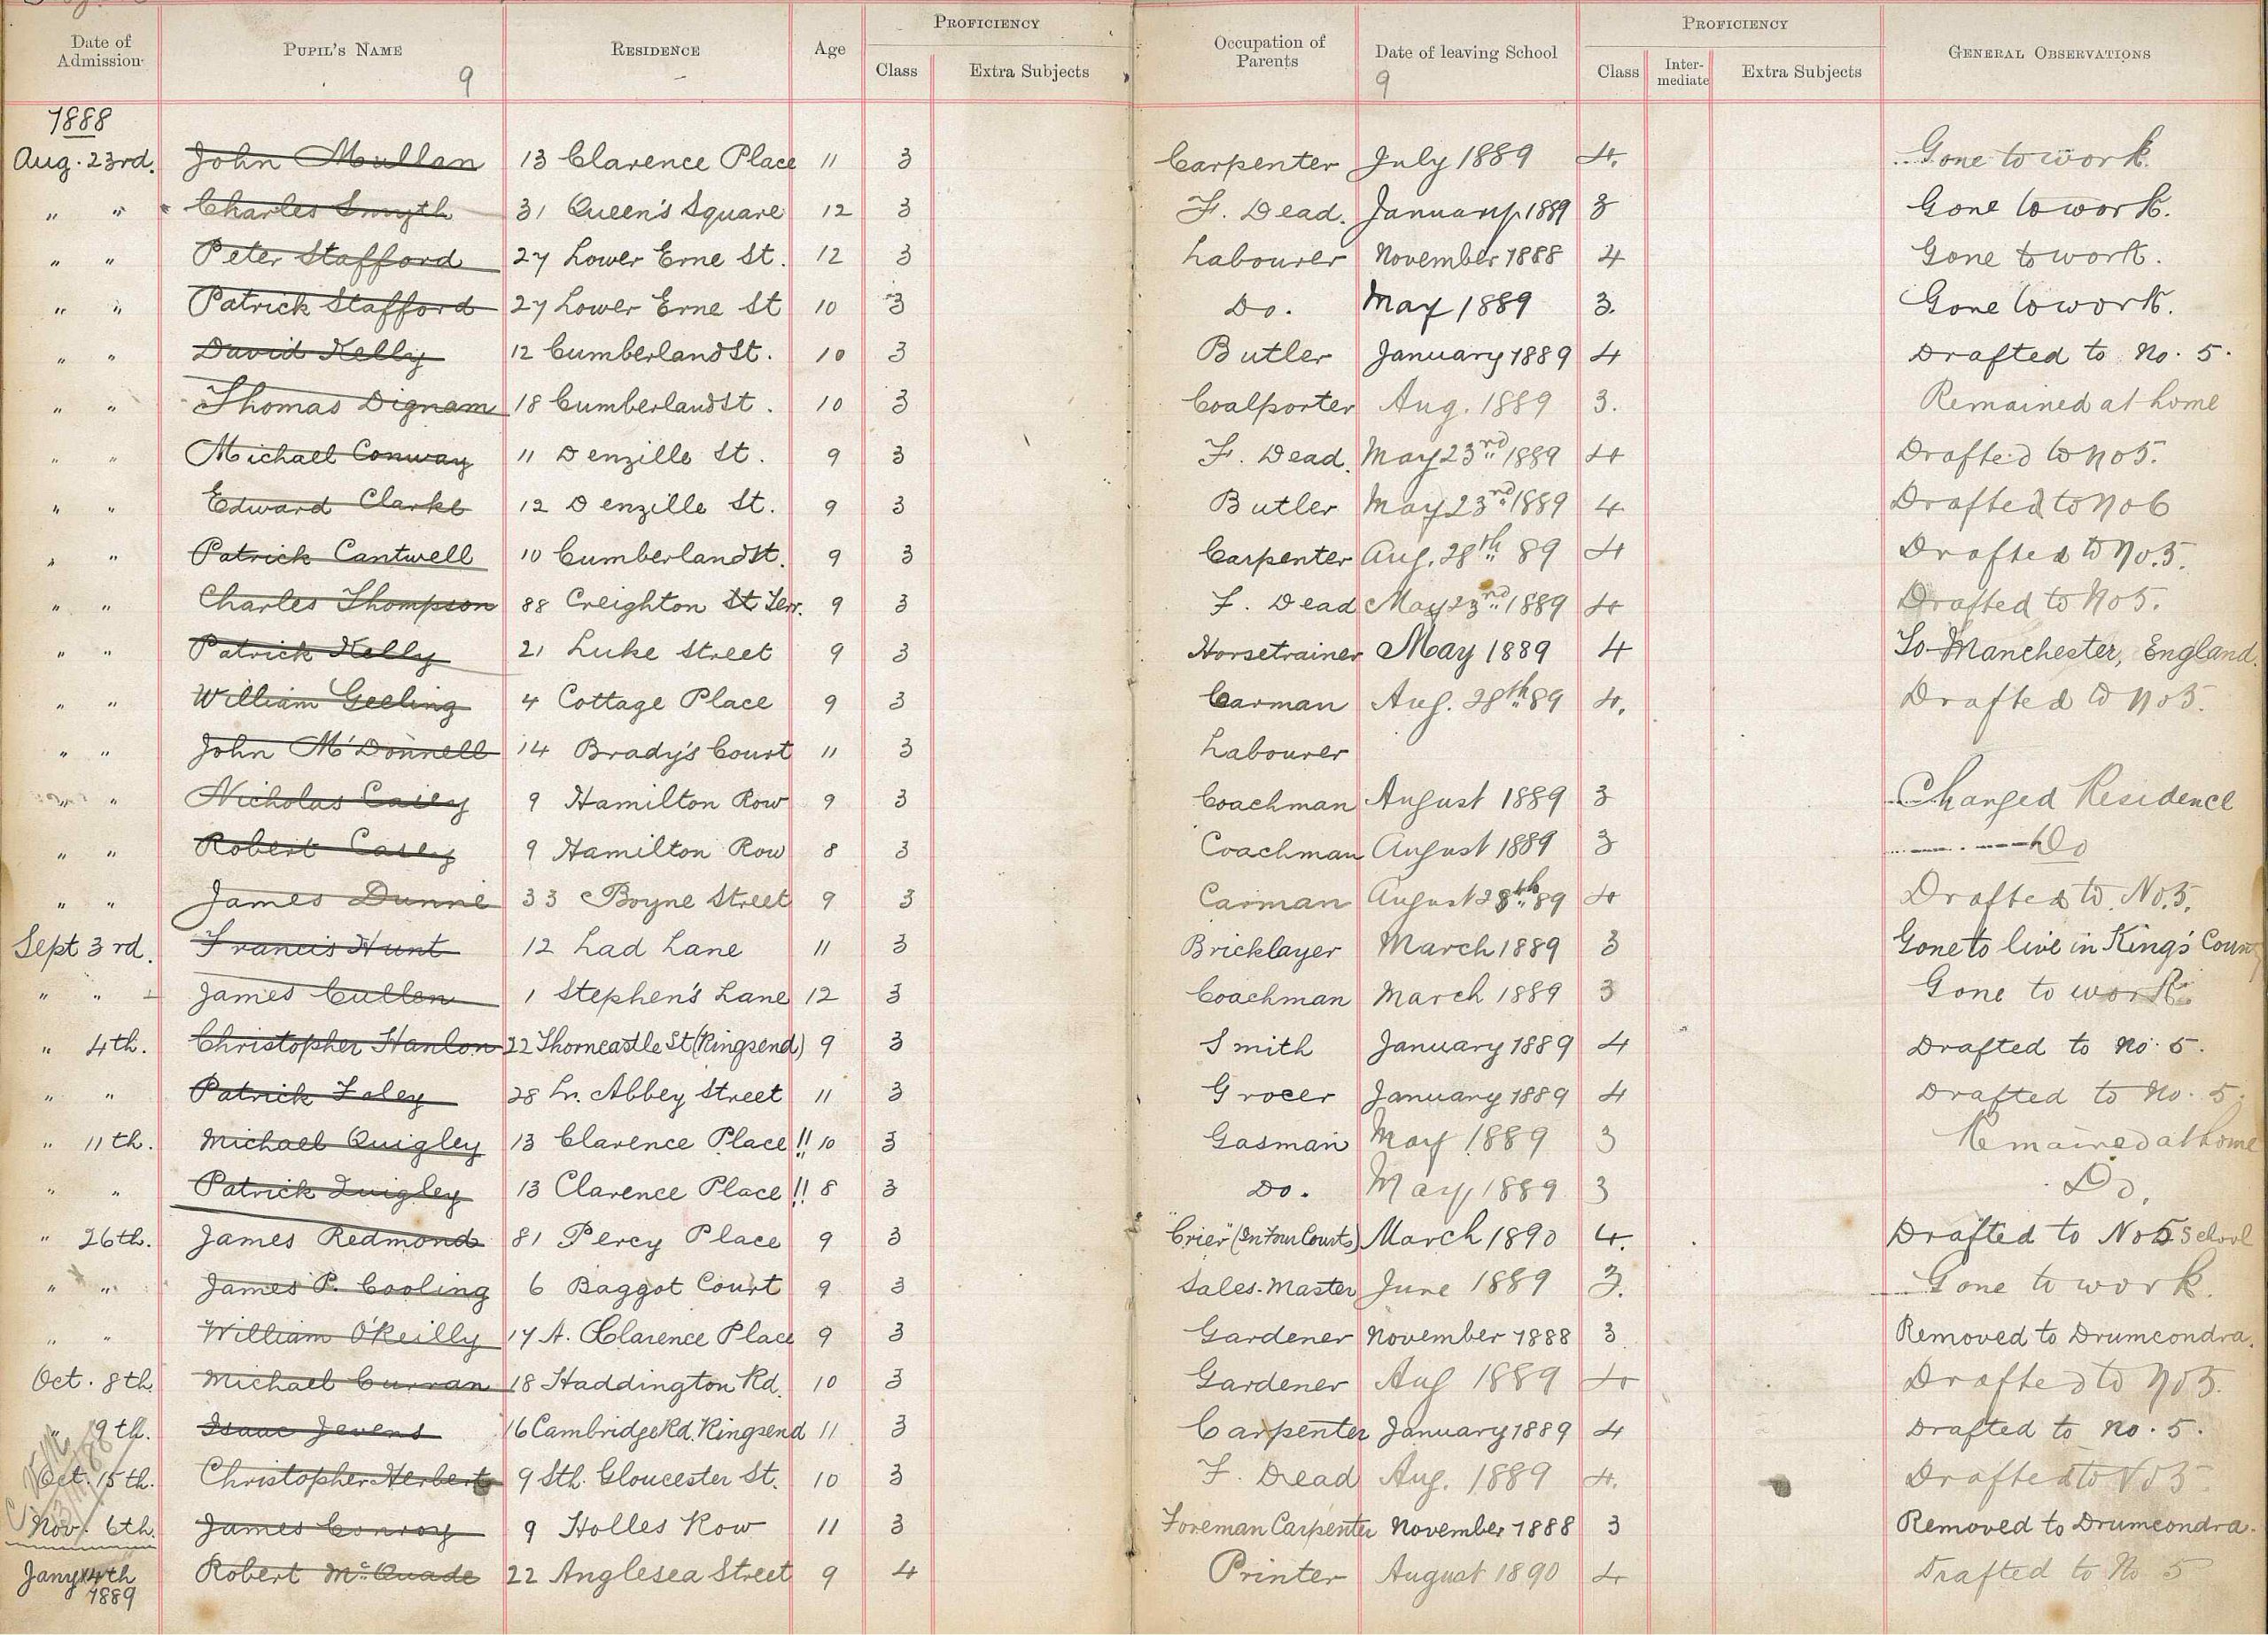 PROFICIENCY PROFICIENCY
Date of Admission PUPIL'S NAME RESIDENCE Age Class Extra Subjects Occupation of Parents Date of leaving School Class Inter-mediate Extra Subjects GENERAL OBSERVATIONS
9 9
1888
Aug. 23rd. John Mullan 13 Clarence Place 11 3 Carpenter July 1889 4. Gone to work.
" " Charles Smyth 31 Queen's Square 12 3 F. Dead. January 1889 3 Gone to work.
" " Peter Stafford 27 Lower Erne St. 12 3 Labourer November 1888 4 Gone to work.
" " Patrick Stafford 27 Lower Erne St 10 3 Do. May 1889 3. Gone to work.
" " David Kelly 12 Cumberland St. 10 3 Butler January 1889 4 Drafted to No. 5.
" " Thomas Dignam 18 Cumberland St. 10 3 Coalporter Aug. 1889 3. Remained at home
" " Michael Conway 11 Denzille St. 9 3 F. Dead. May 23rd 1889 4 Drafted to No 5.
" " Edward Clarke 12 Denzille St. 9 3 Butler May 23rd 1889 4 Drafted to No 6
" " Patrick Cantwell 10 Cumberland St. 9 3 Carpenter Aug. 28th 89 4 Drafted to No. 5.
" " Charles Thompson 88 Creighton St Terr. 9 3 F. Dead May 23rd 1889 4 Drafted to No 5.
" " Patrick Kelly 21 Luke Street 9 3 Horsetrainer May 1889 4 To Manchester, England.
" " William Geeling 4 Cottage Place 9 3 Carman Aug. 28th 89 4. Drafted to No 5.
" " John McDonnell 14 Brady's Court 11 3 Labourer
" " Nicholas Casey 9 Hamilton Row 9 3 Coachman August 1889 3 Changed Residence
" " Robert Casey 9 Hamilton Row 8 3 Coachman August 1889 3 Do
" " James Dunne 33 Boyne Street 9 3 Carman August 28th 89 4 Drafted to No. 5.
Sept 3rd. Francis Hunt 12 Lad Lane 11 3 Bricklayer March 1889 3 Gone to live in King's County
" " James Cullen 1 Stephen's Lane 12 3 Coachman March 1889 3 Gone to work.
" 4th. Christopher Hanlon 22 Thorncastle St (Ringsend) 9 3 Smith January 1889 4 Drafted to No. 5.
" " Patrick Foley 28 Lr. Abbey Street 11 3 Grocer January 1889 4 Drafted to No. 5.
" 11th. Michael Quigley 13 Clarence Place !! 10 3 Gasman May 1889 3 Remained at home
" " Patrick Quigley 13 Clarence Place !! 8 3 Do. May 1889 3 Do.
" 26th. James Redmond 81 Percy Place 9 3 "Crier" (In Four Courts) March 1890 4. Drafted to No 5 School
" " James P. Cooling 6 Baggot Court 9 3 Sales-Master June 1889 3. Gone to work.
" " William O'Reilly 17 A. Clarence Place 9 3 Gardener November 1888 3 Removed to Drumcondra.
Oct. 8th. Michael Curran 18 Haddington Rd. 10 3 Gardener Aug 1889 4 Drafted to No 5.
" 9th. Isaac Jevens 16 Cambridge Rd. Ringsend 11 3 Carpenter January 1889 4 Drafted to No. 5.
Oct. 15th. Christopher Herbert 9 Sth. Gloucester St. 10 3 F. Dead Aug. 1889 4. Drafted to No 5
Nov. 6th. James Conroy 9 Holles Row 11 3 Foreman Carpenter November 1888 3 Removed to Drumcondra.
Jany 14th 1889 Robert McQuade 22 Anglesea Street 9 4 Printer August 1890 4 Drafted to No 5